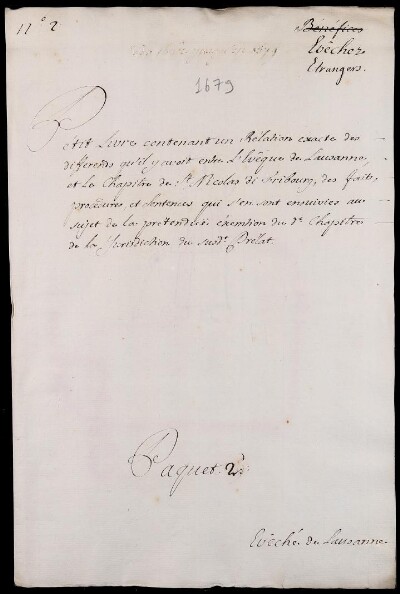 n° 2
Bénéfices
Evêchez
Etrangers.
1679
Petit Livre contenant un Rélation exacte des
differends qu'il y avoit entre L'Evêque de Lausanne,
et Le Chapitre de St. Nicolas de Fribourg, des faits,
procedures et sentences qui s'en sont ensuivies au
sujet de la pretenduë éxemtion du dt. Chapitre
de la Jurisdiction du susdt. Prélat.
Paquet. 2d.
Evêché de Lausanne